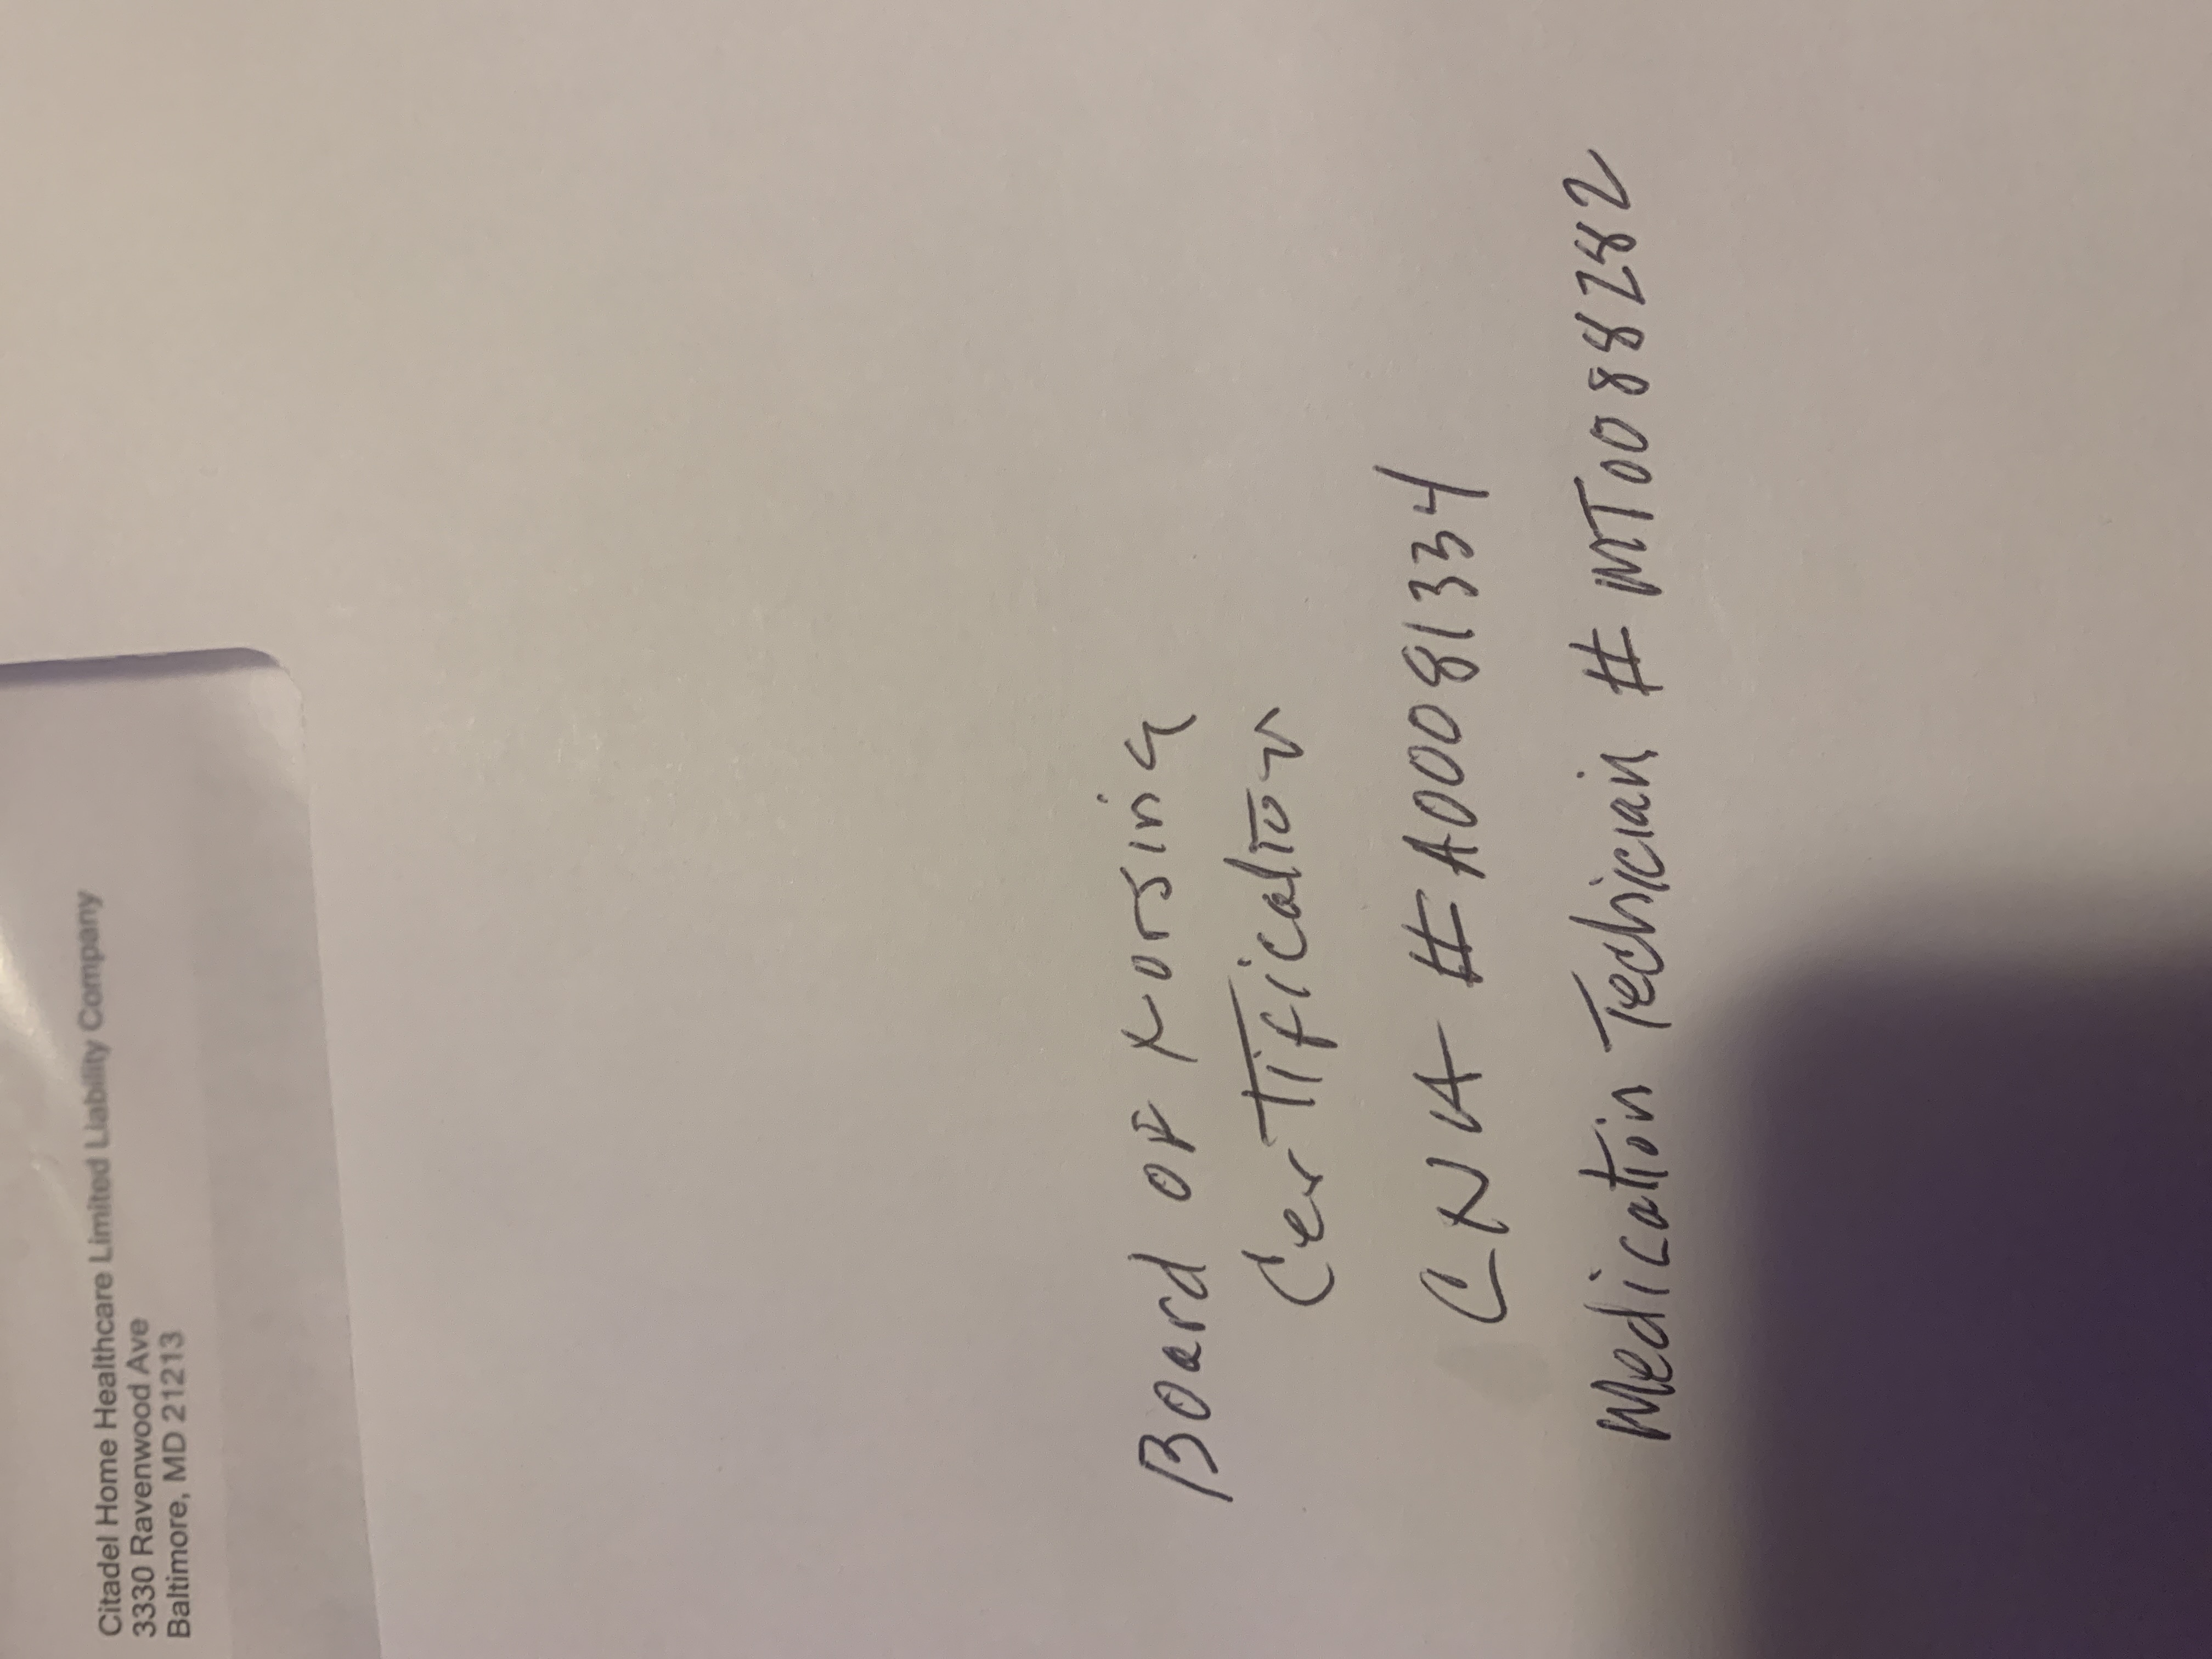 Citadel Home Healthcare Limited Liability Company
3330 Ravenwood Ave
Baltimore, MD 21213
Board of Norsing
Certification
CNA #A00081334
Medication Techician # MT0088282